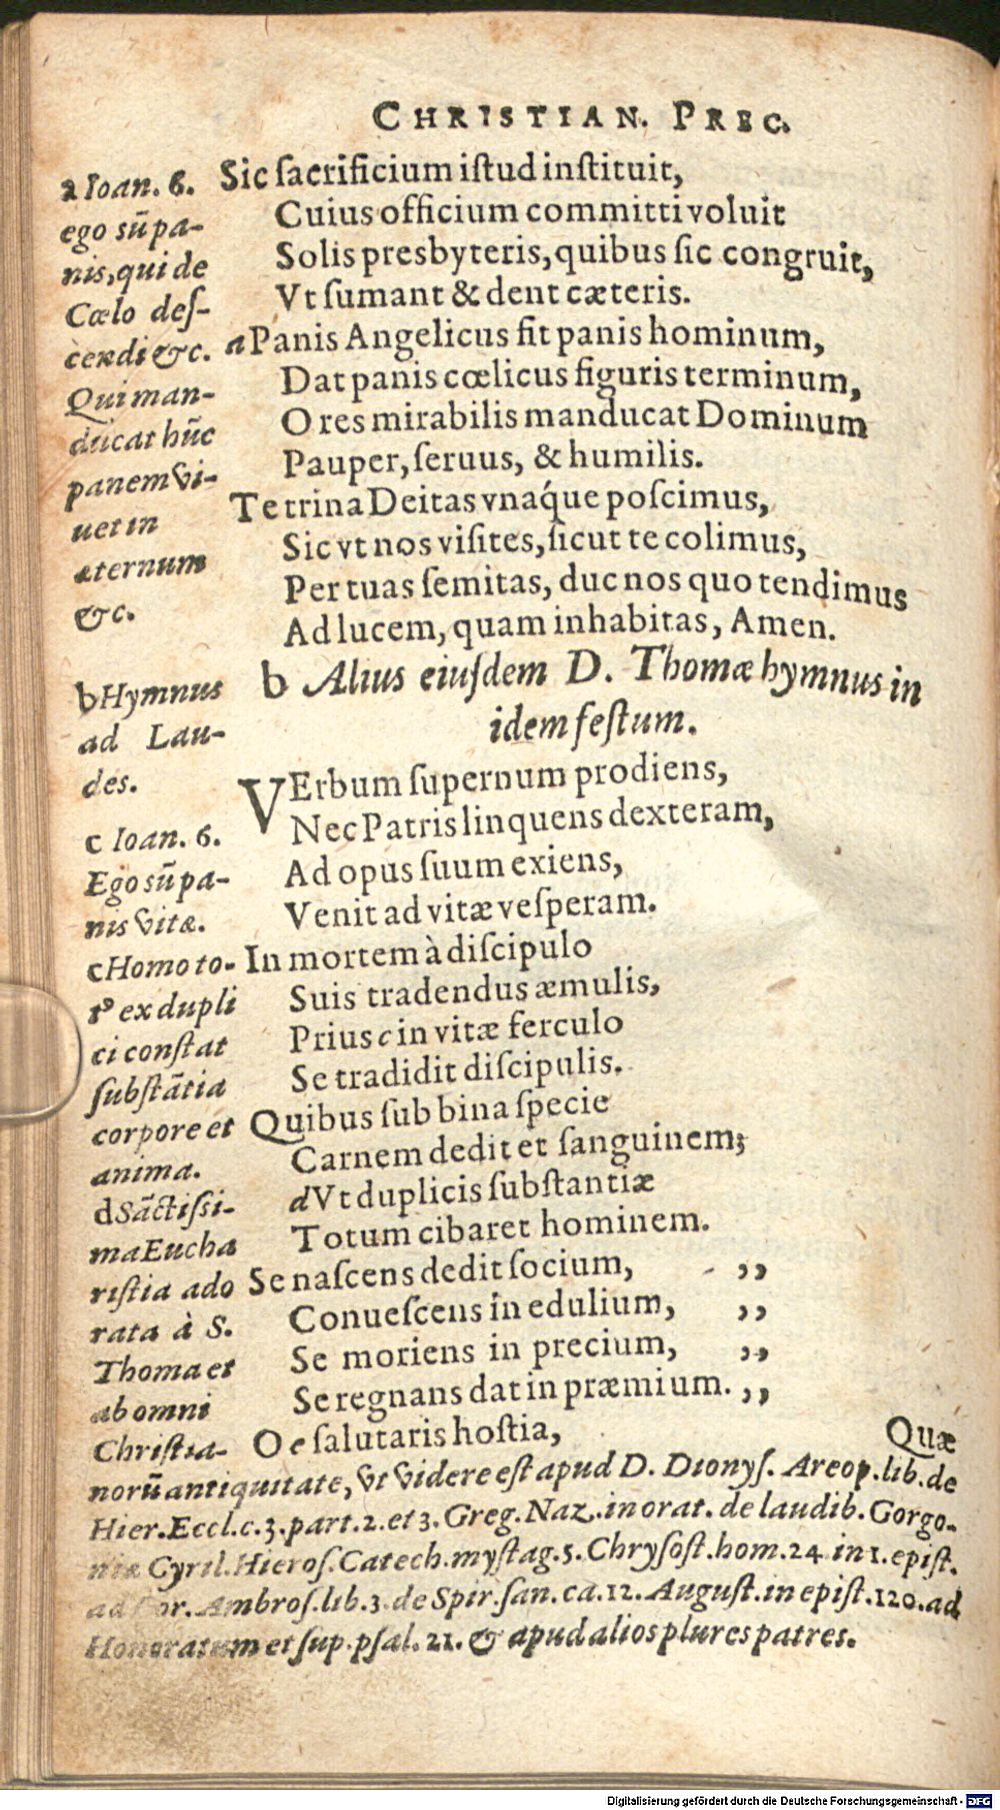 CHRISTIAN. PREC.
Sic ſacrificium iſtud inſtituit,
Cuius officium committi voluit
Solis presbyteris, quibus ſic congruit,
Vt ſumant & dent cæteris.
a Panis Angelicus fit panis hominum,
Dat panis cœlicus figuris terminum,
O res mirabilis manducat Dominum
Pauper, ſeruus, & humilis.
Te trina Deitas vnaq́ue poſcimus,
Sic vt nos viſites, ſicut te colimus,
Per tuas ſemitas, duc nos quo tendimus
Ad lucem, quam inhabitas, Amen.
b Alius eiuſdem D. Thomæ hymnus in
idem feſtum.
VErbum ſupernum prodiens,
Nec Patris linquens dexteram,
Ad opus ſuum exiens,
Venit ad vitæ veſperam.
In mortem à diſcipulo
Suis tradendus æmulis,
Prius c in vitæ ferculo
Se tradidit diſcipulis.
Quibus ſub bina ſpecie
Carnem dedit et ſanguinem;
d Vt duplicis ſubſtantiæ
Totum cibaret hominem.
Se naſcens dedit ſocium, ,,
Conueſcens in edulium, ,,
Se moriens in precium, ,,
Se regnans dat in præmium. ,,
O e ſalutaris hoſtia,
Quæ
a Ioan. 6.
ego sũ pa-
nis, qui de
Cœlo deſ-
cendi &c.
Qui man-
ducat hũc
panem vi-
uet in
æternum
&c.
b Hymnus
ad Lau-
des.
c Ioan. 6.
Ego sũ pa-
nis vitæ.
c Homo to-
tꝰ ex dupli
ci conſtat
ſubſtãtia
corpore et
anima.
d Sãctiſsi-
ma Eucha
riſtia ado
rata à S.
Thoma et
ab omni
Chriſtia-
norũ antiquitate, vt videre eſt apud D. Dionyſ. Areop. lib. de
Hier. Eccl. c. 3. part. 2. et 3. Greg. Naz. in orat. de laudib. Gorgo-
niæ Cyril. Hieroſ. Catech. myſtag. 5. Chryſoſt. hom. 24 in 1. epiſt.
ad Cor. Ambroſ. lib. 3. de Spir. ſan. ca. 12. Auguſt. in epiſt. 120. ad
Honoratum et ſup. pſal. 21. & apud alios plures patres.
Digitalisierung gefördert durch die Deutsche Forschungsgemeinschaft - DFG